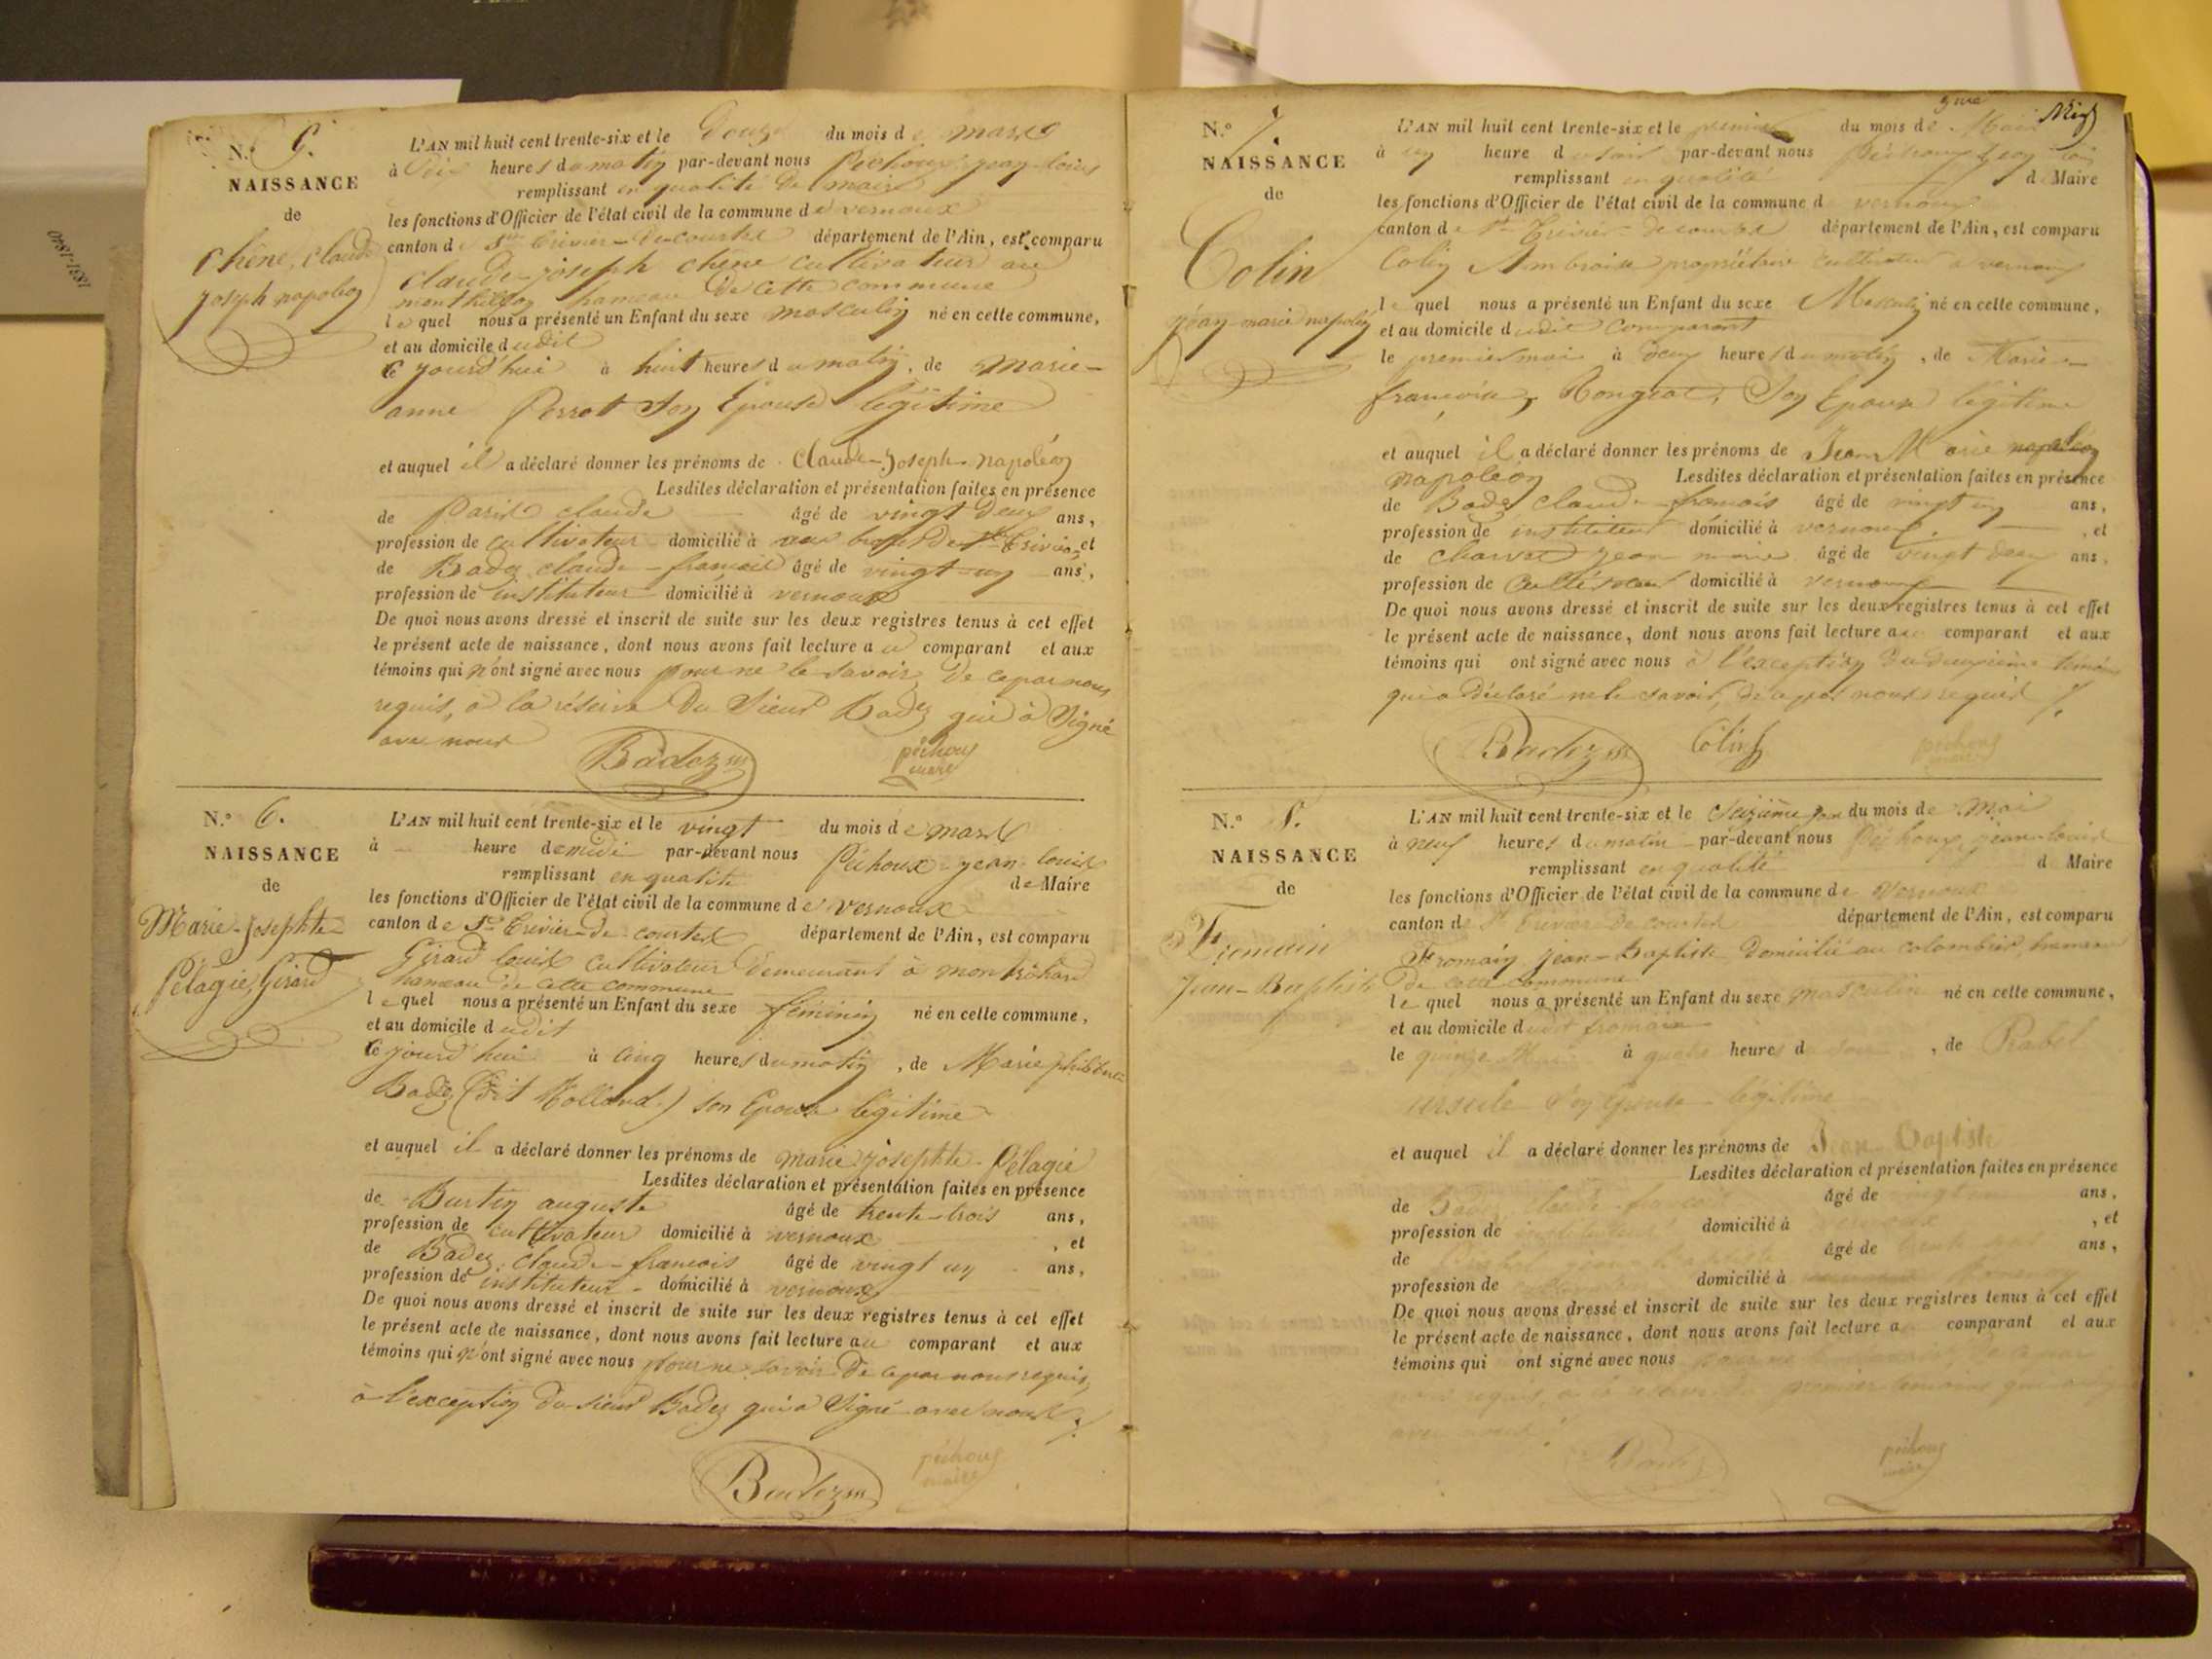 1831-1840
N.° 5.
NAISSANCE
de
Chêne, Claude
Joseph napoléon
L'AN mil huit cent trente-six et le Douze du mois de mars
à heures du matin par-devant nous Péchoux jean-louis
remplissant en qualité de maire
les fonctions d'Officier de l'état civil de la commune de vernoux
canton de St Trivier-de-courtes département de l'Ain, est comparu
Claude-joseph chêne cultivateur au
hameau de cette commune
lequel nous a présenté un Enfant du sexe masculin né en cette commune,
et au domicile dudit
ce jourd'hui à huit heures du matin, de Marie-
anne Perrot son Epouse légitime
et auquel il a déclaré donner les prénoms de Claude-Joseph-napoléon
Lesdites déclaration et présentation faites en présence
de Paris claude âgé de vingt Deux ans,
profession de cultivateur domicilié à de St Trivier et
de Badez claude-francois âgé de vingt-un ans,
profession de instituteur domicilié à vernoux
De quoi nous avons dressé et inscrit de suite sur les deux registres tenus à cet effet
le présent acte de naissance, dont nous avons fait lecture au comparant et aux
témoins qui n'ont signé avec nous pour ne le savoir, De ce par nous
requis, à la réserve Du Sieur Badez qui à Signé
avec nous
Badez péchoux
maire
N.° 6.
NAISSANCE
de
Marie-Josephte
Pélagie, Girard
L'AN mil huit cent trente-six et le vingt du mois de mars
à heure de midi par-devant nous Péchoux jean-louis
remplissant en qualité de Maire
les fonctions d'Officier de l'état civil de la commune de vernoux
canton de St Trivier-de-courtes département de l'Ain, est comparu
Girard louis cultivateur Demeurant à
hameau de cette commune
lequel nous a présenté un Enfant du sexe féminin né en cette commune,
et au domicile dudit
ce jourd'hui à cinq heures du matin, de Marie philiberte
Badez (dit Holland) son Epouse légitime
et auquel il a déclaré donner les prénoms de marie josephte-Pélagie
Lesdites déclaration et présentation faites en présence
de Burtin auguste âgé de trente-trois ans,
profession de cultivateur domicilié à vernoux, et
de Badez Claude-francois âgé de vingt un ans,
profession de instituteur domicilié à vernoux
De quoi nous avons dressé et inscrit de suite sur les deux registres tenus à cet effet
le présent acte de naissance, dont nous avons fait lecture au comparant et aux
témoins qui n'ont signé avec nous pour ne savoir De ce par nous requis,
à l'exception du sieur Badez qui a Signé avec nous
Badez péchoux
maire
N.° 7.
NAISSANCE
de
Colin
jean-marie napoléon
L'AN mil huit cent trente-six et le premier du mois de Mai
à un heure du soir par-devant nous Péchoux jean louis
remplissant en qualité d Maire
les fonctions d'Officier de l'état civil de la commune d vernoux
canton de St Trivier-de courtes département de l'Ain, est comparu
Colin Ambroise propriétaire cultivateur à vernoux
lequel nous a présenté un Enfant du sexe Masculin né en cette commune,
et au domicile dudit comparant
le premier mai à deux heures du matin, de Marie-
francoise, Son Epouse légitime
et auquel il a déclaré donner les prénoms de Jean Marie napoléon
napoléon Lesdites déclaration et présentation faites en présence
de Badez claude-francois âgé de vingt un ans,
profession de instituteur domicilié à vernoux, et
de Charvet jean marie âgé de vingt deux ans,
profession de cultivateur domicilié à vernoux
De quoi nous avons dressé et inscrit de suite sur les deux registres tenus à cet effet
le présent acte de naissance, dont nous avons fait lecture au comparant et aux
témoins qui ont signé avec nous à l'exception du deuxième témoin
qui a déclaré ne le savoir, de ce par nous requis
Badez Colin péchoux
maire
N.° 8.
NAISSANCE
de
Jean-Baptiste
L'AN mil huit cent trente-six et le Seizième jour du mois de Mai
à neuf heures du matin par-devant nous Péchoux, jean-louis
remplissant en qualité d Maire
les fonctions d'Officier de l'état civil de la commune de vernoux
canton de St Trivier-De courtes département de l'Ain, est comparu
Fromain jean-Baptiste Domicilié au colombier, hameau
de cette commune
lequel nous a présenté un Enfant du sexe masculin né en cette commune,
et au domicile dudit fromain
le quinze Mai à quatre heures d soir, de Rabel
ursule son Epouse légitime
et auquel il a déclaré donner les prénoms de Jean-Baptiste
Lesdites déclaration et présentation faites en présence
de Badez claude-francois âgé de vingt ans,
profession de instituteur domicilié à vernoux, et
de âgé de trente ans,
profession de domicilié à
De quoi nous avons dressé et inscrit de suite sur les deux registres tenus à cet effet
le présent acte de naissance, dont nous avons fait lecture a comparant et aux
témoins qui ont signé avec nous pour ne
requis, à la réserve premier témoins qui a
avec nous
Badez péchoux
maire